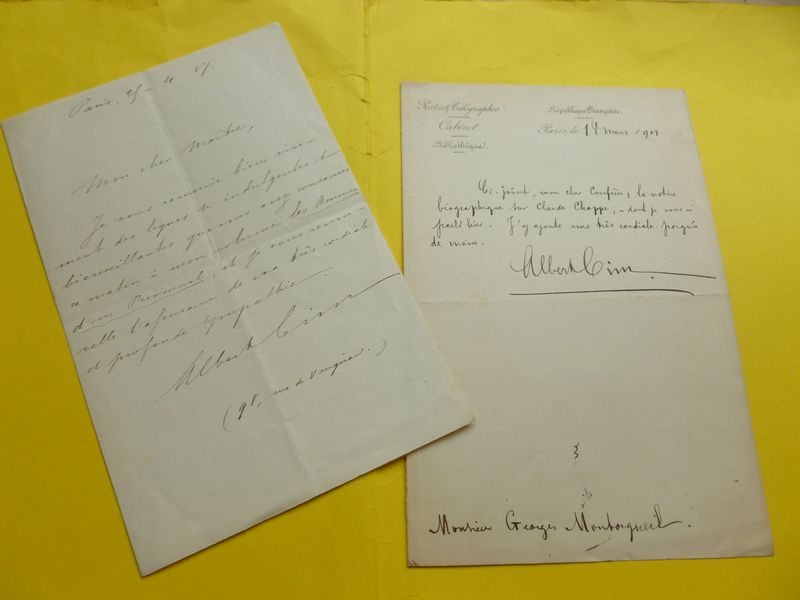 Paris, 25-10 87.
Mon cher Maître,
Je vous remercie bien vive-
ment des lignes si indulgentes et
bienveillantes que vous avez consacrées
ce matin à mon volume les Amours
d'un Provincial, et je vous renou-
velle l'assurance de ma très cordiale
et profonde sympathie.
Albert Cim
(98, rue de Vaugirard.)
Postes & Télégraphes
Cabinet
Bibliothèque.
République Française.
Paris, le 18 mars 1901
Ci-joint, mon cher Confrère, la notice
biographique sur Claude Chappe, dont je vous ai
parlé hier. J'y ajoute une très cordiale poignée
de main.
Albert Cim
Monsieur Georges Montorgueil.